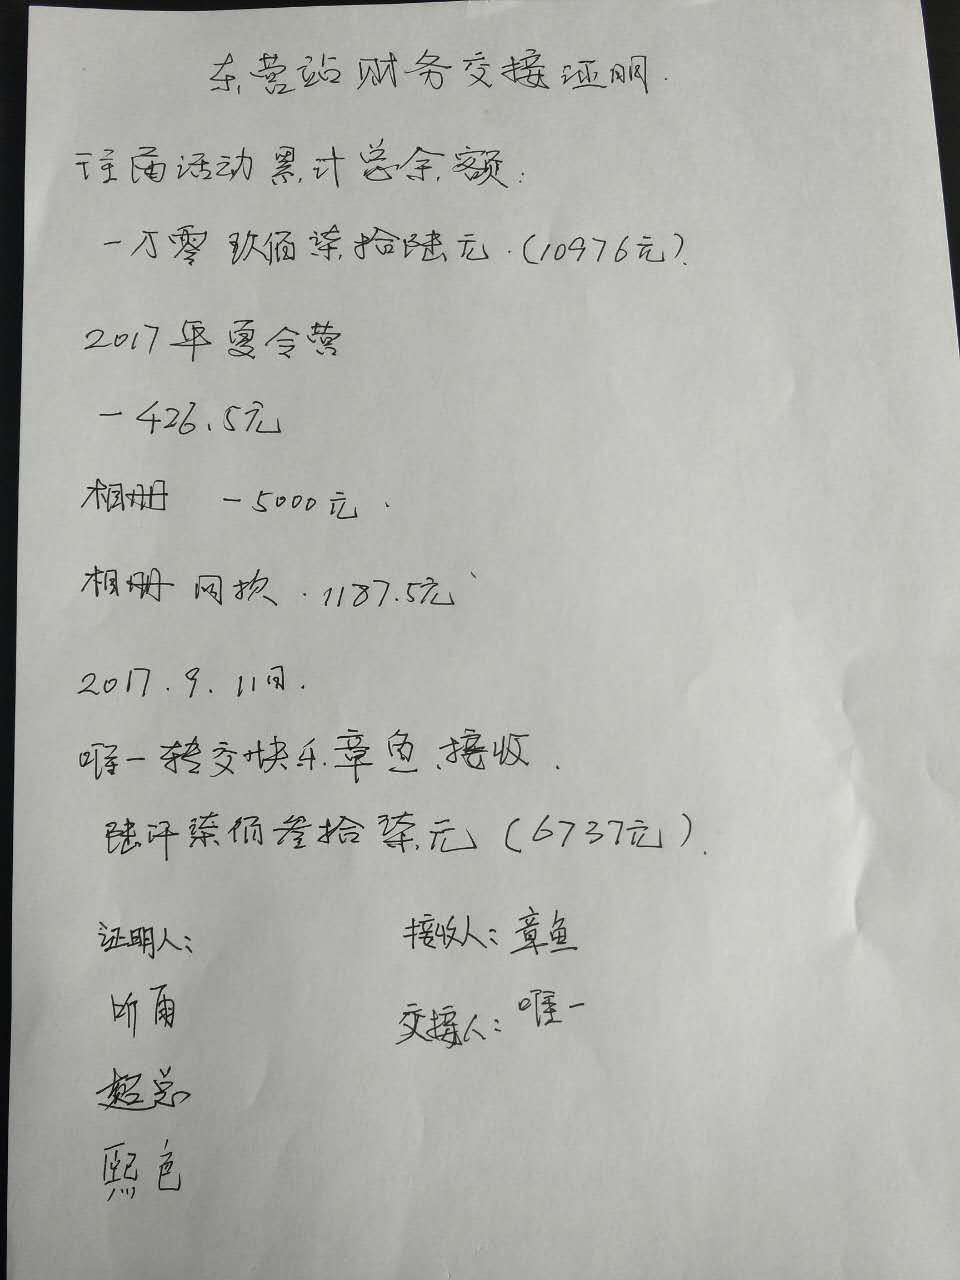 东营站财务交接证明.
往届活动累计总余额:
一万零玖佰柒拾陆元.(10976元).
2017年夏令营
-426.5元
相册 -5000元.
相册回款.1187.5元
2017.9.11日.
唯一转交快乐章鱼接收.
陆仟柒佰叁拾柒元(6737元).
证明人: 接收人:章鱼
听雨 交接人:唯一
超总
熙色